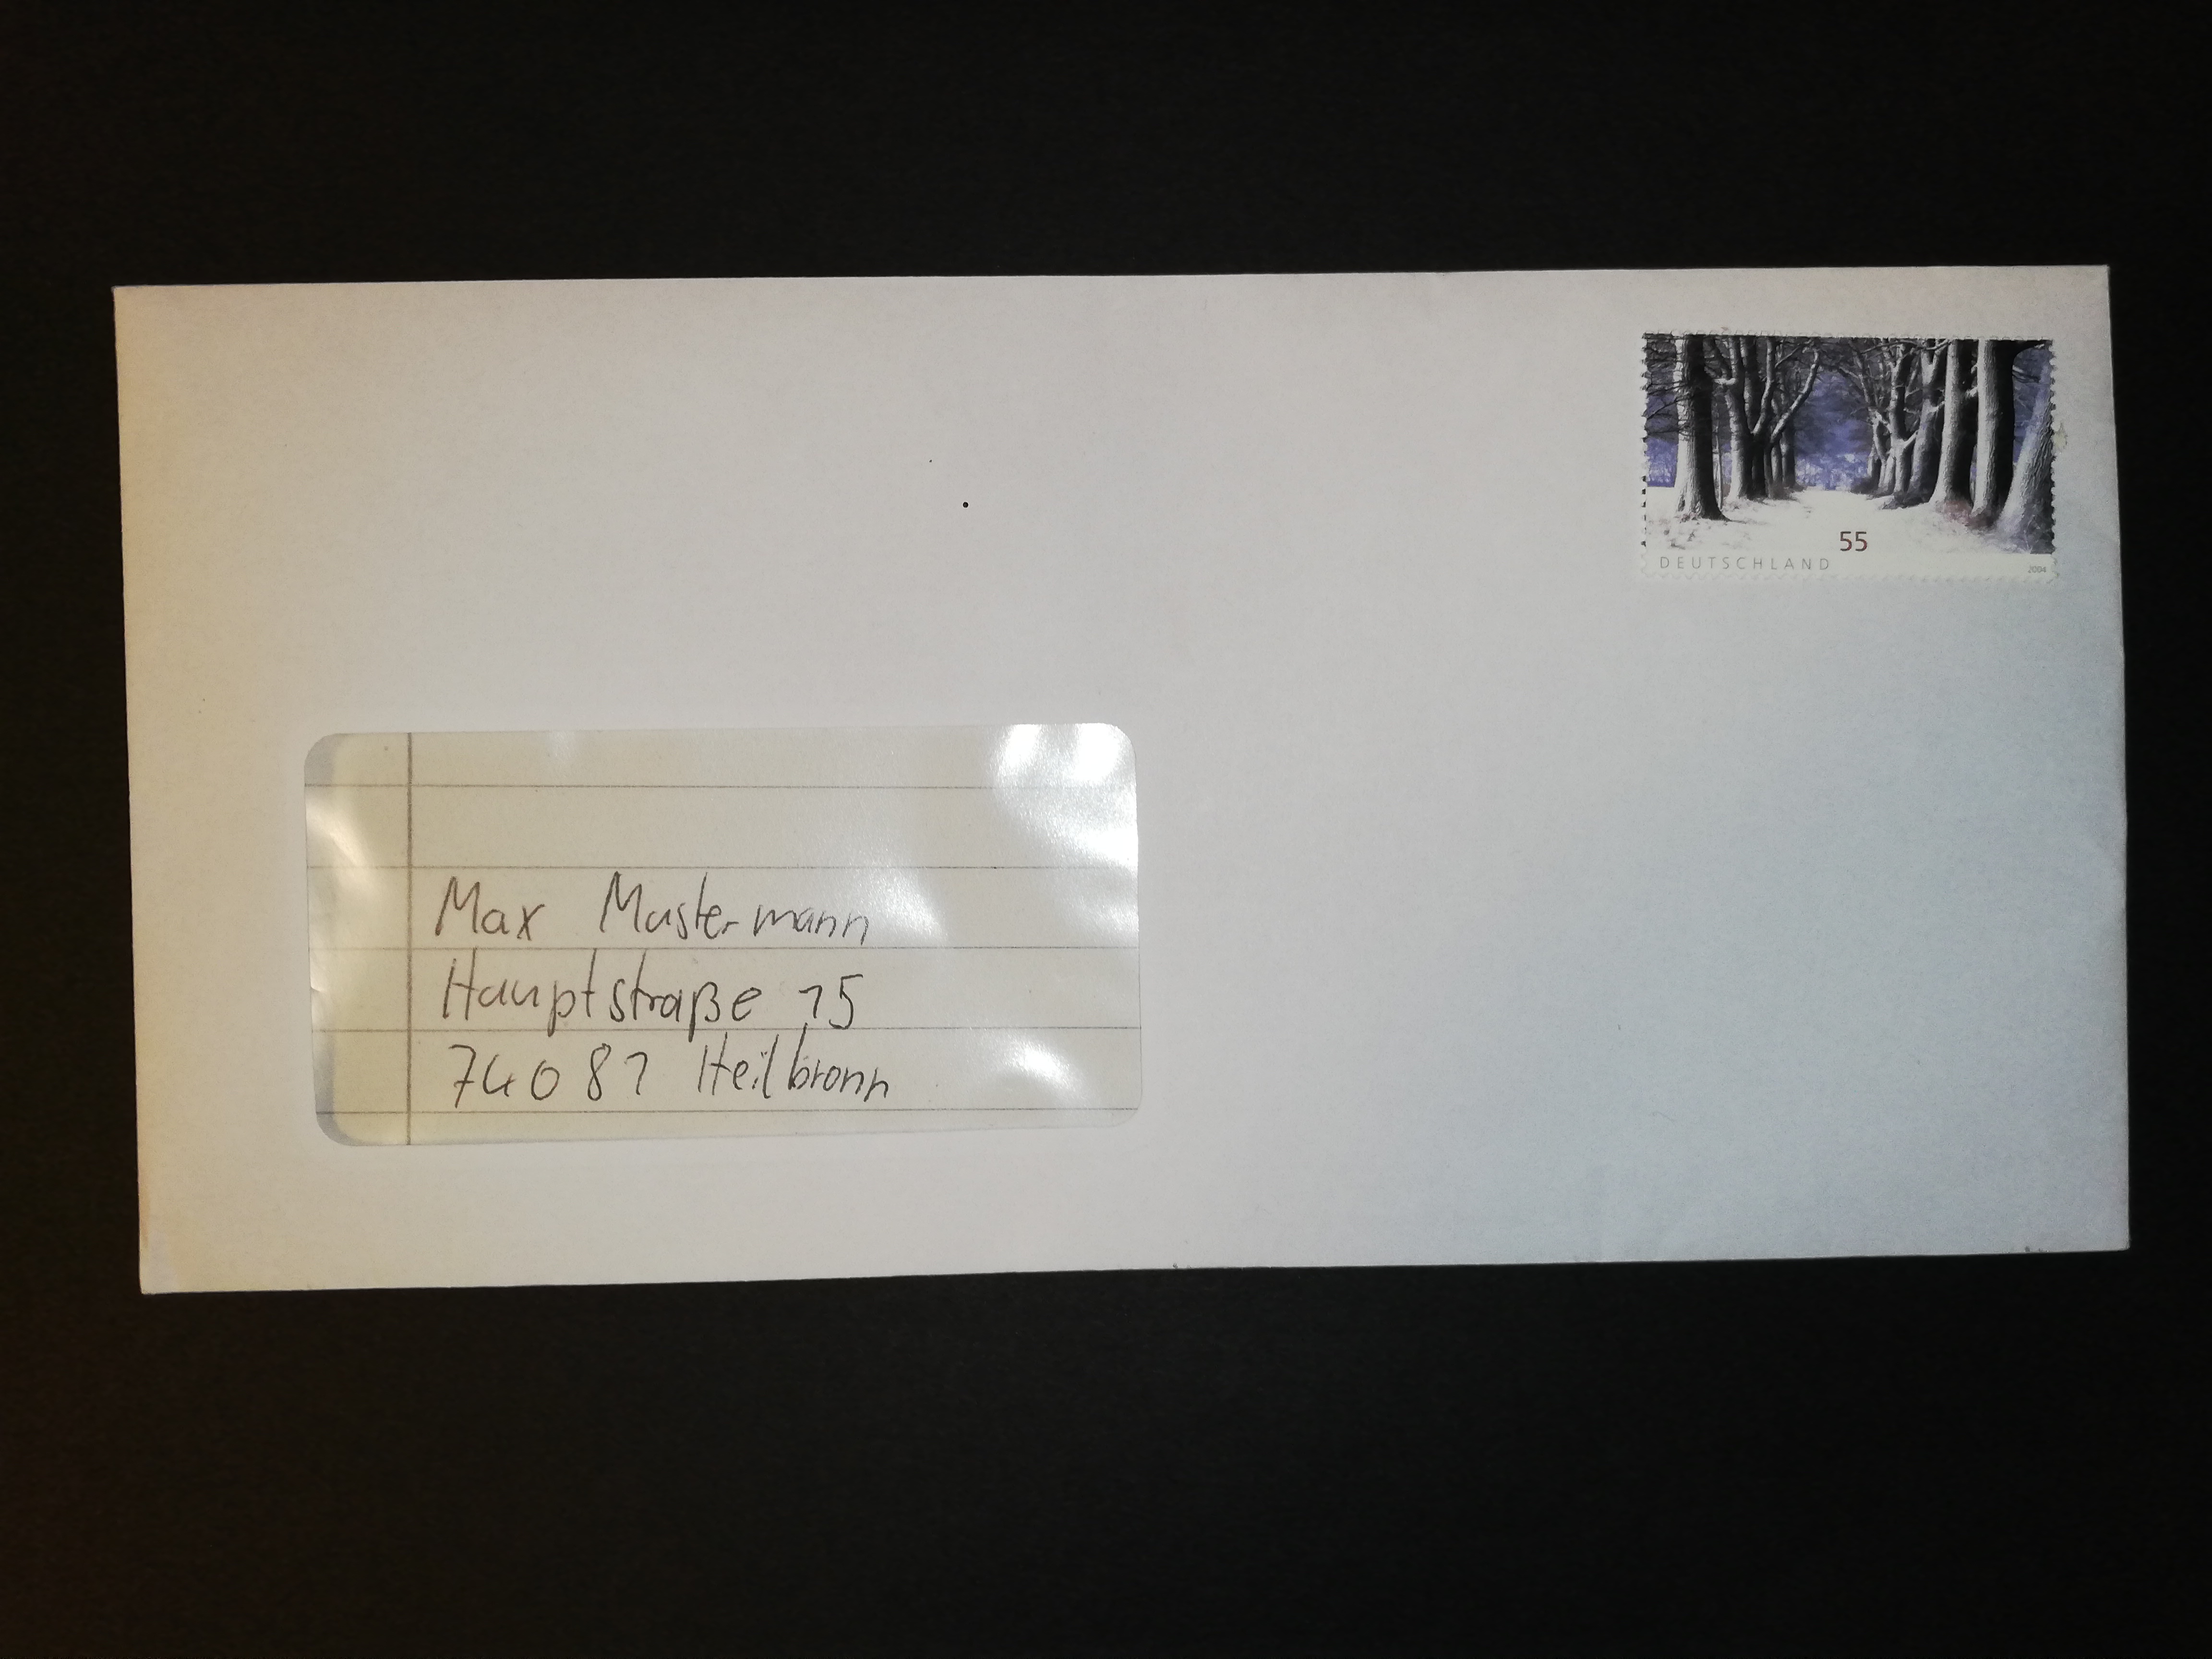 55
DEUTSCHLAND 2004
Max Mustermann
Hauptstraße 15
74081 Heilbronn